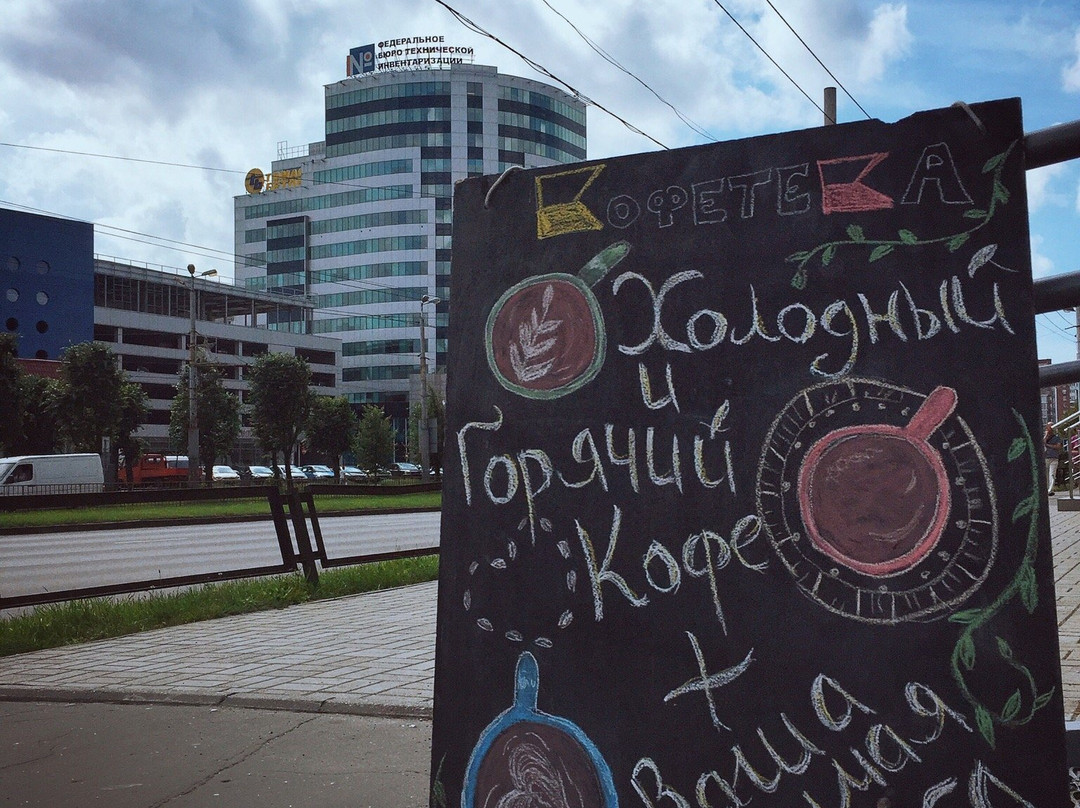 №
ФЕДЕРАЛЬНОЕ
БЮРО ТЕХНИЧЕСКОЙ
ИНВЕНТАРИЗАЦИИ
КОФЕТЕКА
Холодный
и
Горячий
Кофе
+
Ваша